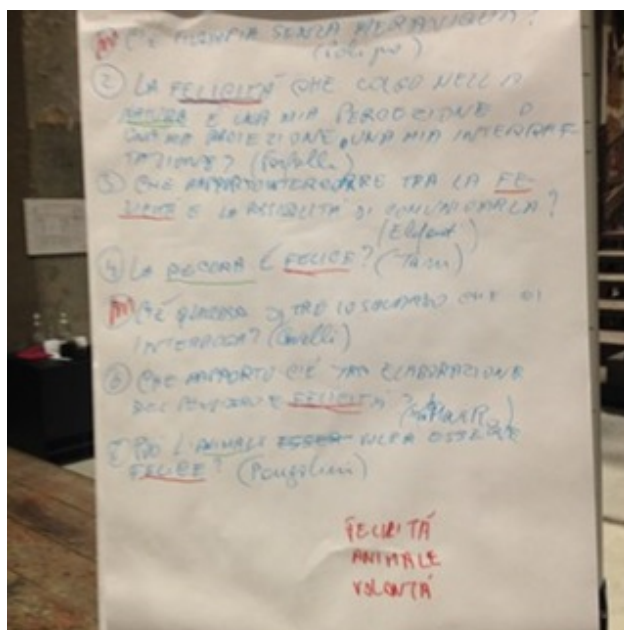 C'È FILOSOFIA SENZA MERAVIGLIA?
② LA FELICITÀ CHE COLGO NELLA
NATURA È UNA MIA PERCEZIONE O
UNA MIA PROIEZIONE, UNA MIA INTERPRE-
TAZIONE? (Farfalle)
③ CHE RAPPORTO INTERCORRE TRA LA FE-
LICITÀ E LA POSSIBILITÀ DI COMUNICARLA?
(Elefanti)
④ LA PECORA È FELICE? (Tassi)
C'È QUALCOSA OLTRE LO SGUARDO CHE CI
INTERROGA? (Cavalli)
⑥ CHE RAPPORTO C'È TRA ELABORAZIONE
DEL PENSIERO E FELICITÀ?
PUÒ L'ANIMALE ESSERE ESSERE
FELICE? (Pangolini)
FELICITÀ
ANIMALE
VOLONTÀ